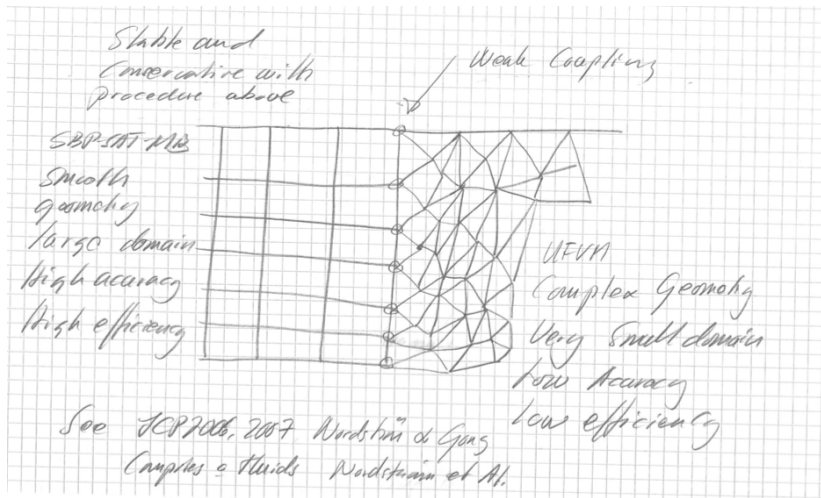 Stable and
Conservative with
procedure above
Weak Coupling
SBP-SAT-MB
Smooth
geometry
large domain
High accuracy
High efficiency
UFVM
Complex Geometry
Very Small domain
Low Acuracy
Low efficiency
See JCP 2006, 2007 Nordström & Gong
Computers & Fluids Nordström et Al.